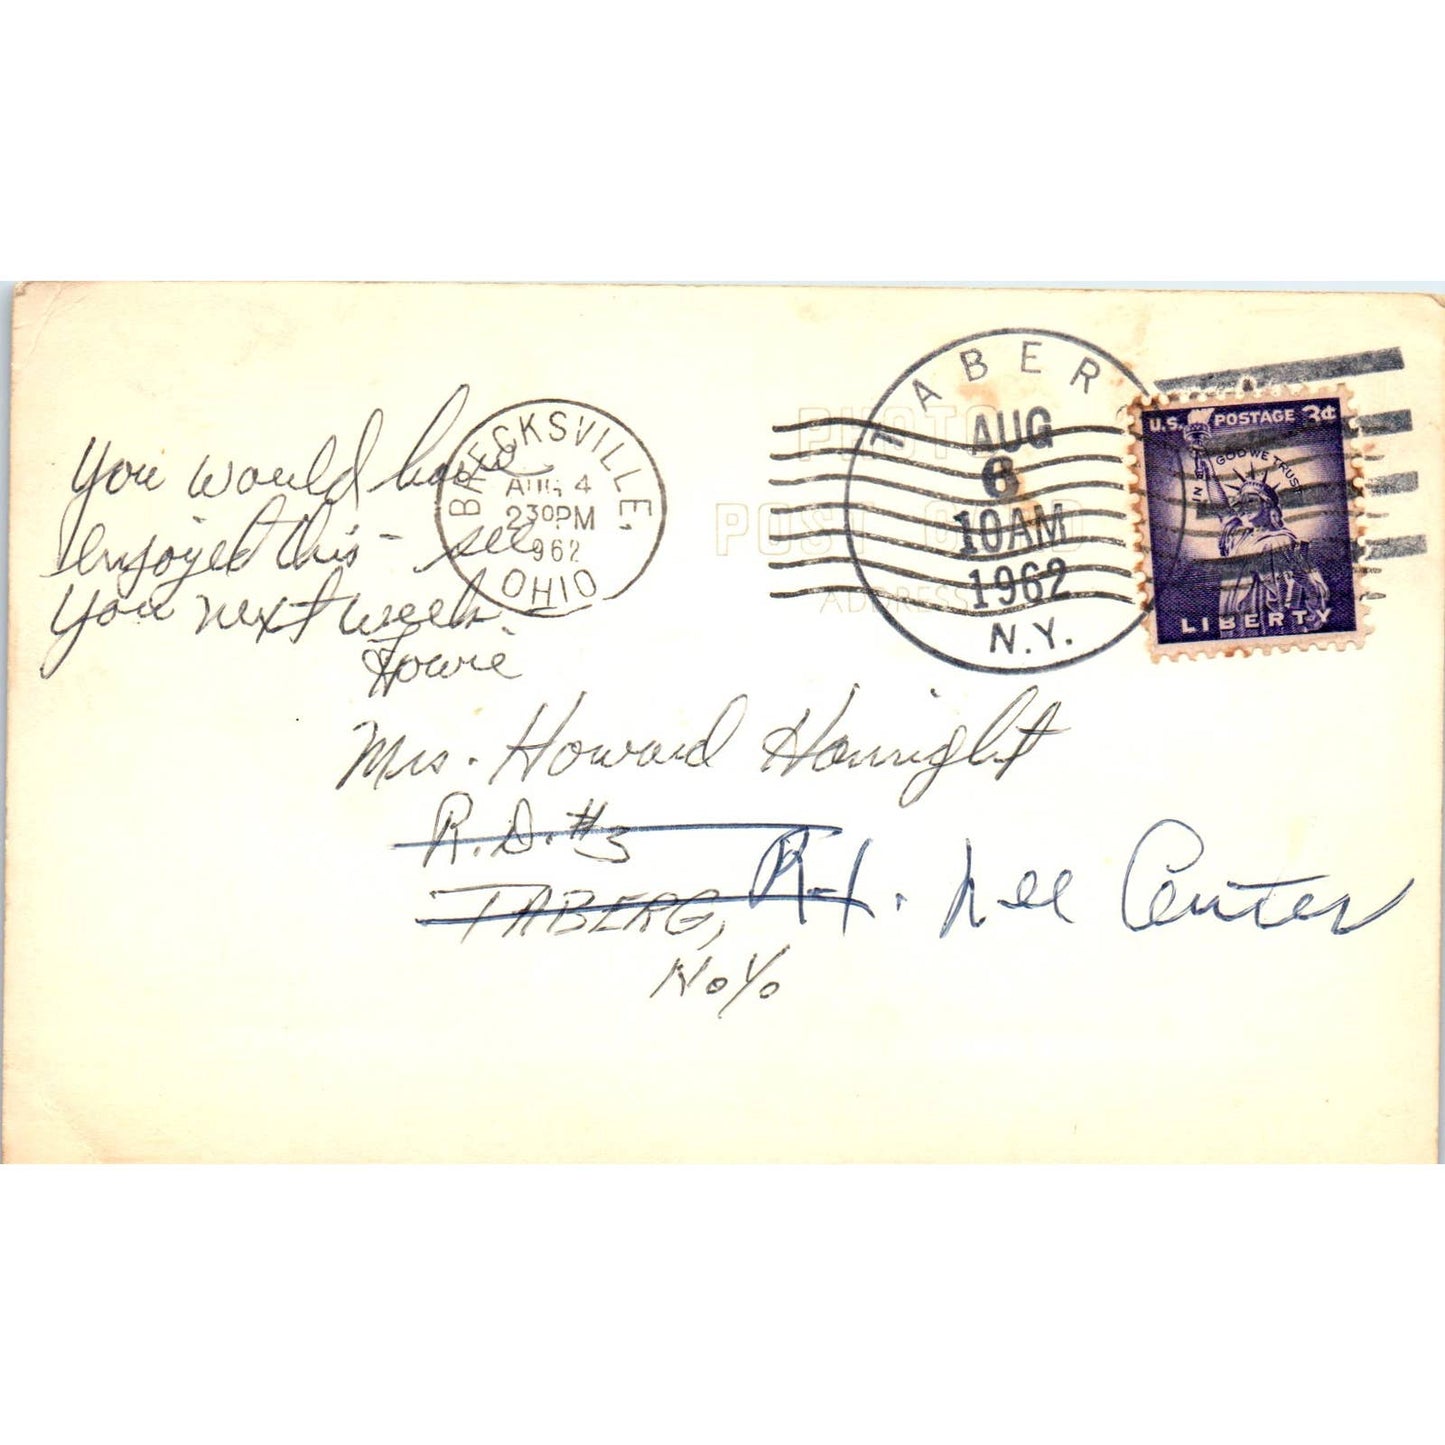 You would have
enjoyed this - see
you next week
Howie
BRECKSVILLE,
AUG 4
230PM
1962
OHIO
TABERG
AUG
6
10AM
1962
N.Y.
PHOTO
POST CARD
ADDRESS
U.S. POSTAGE 3¢
IN GOD WE TRUST
LIBERTY
Mrs. Howard
R.D. #3
TABERG,
Rt. Lee Center
N.Y.